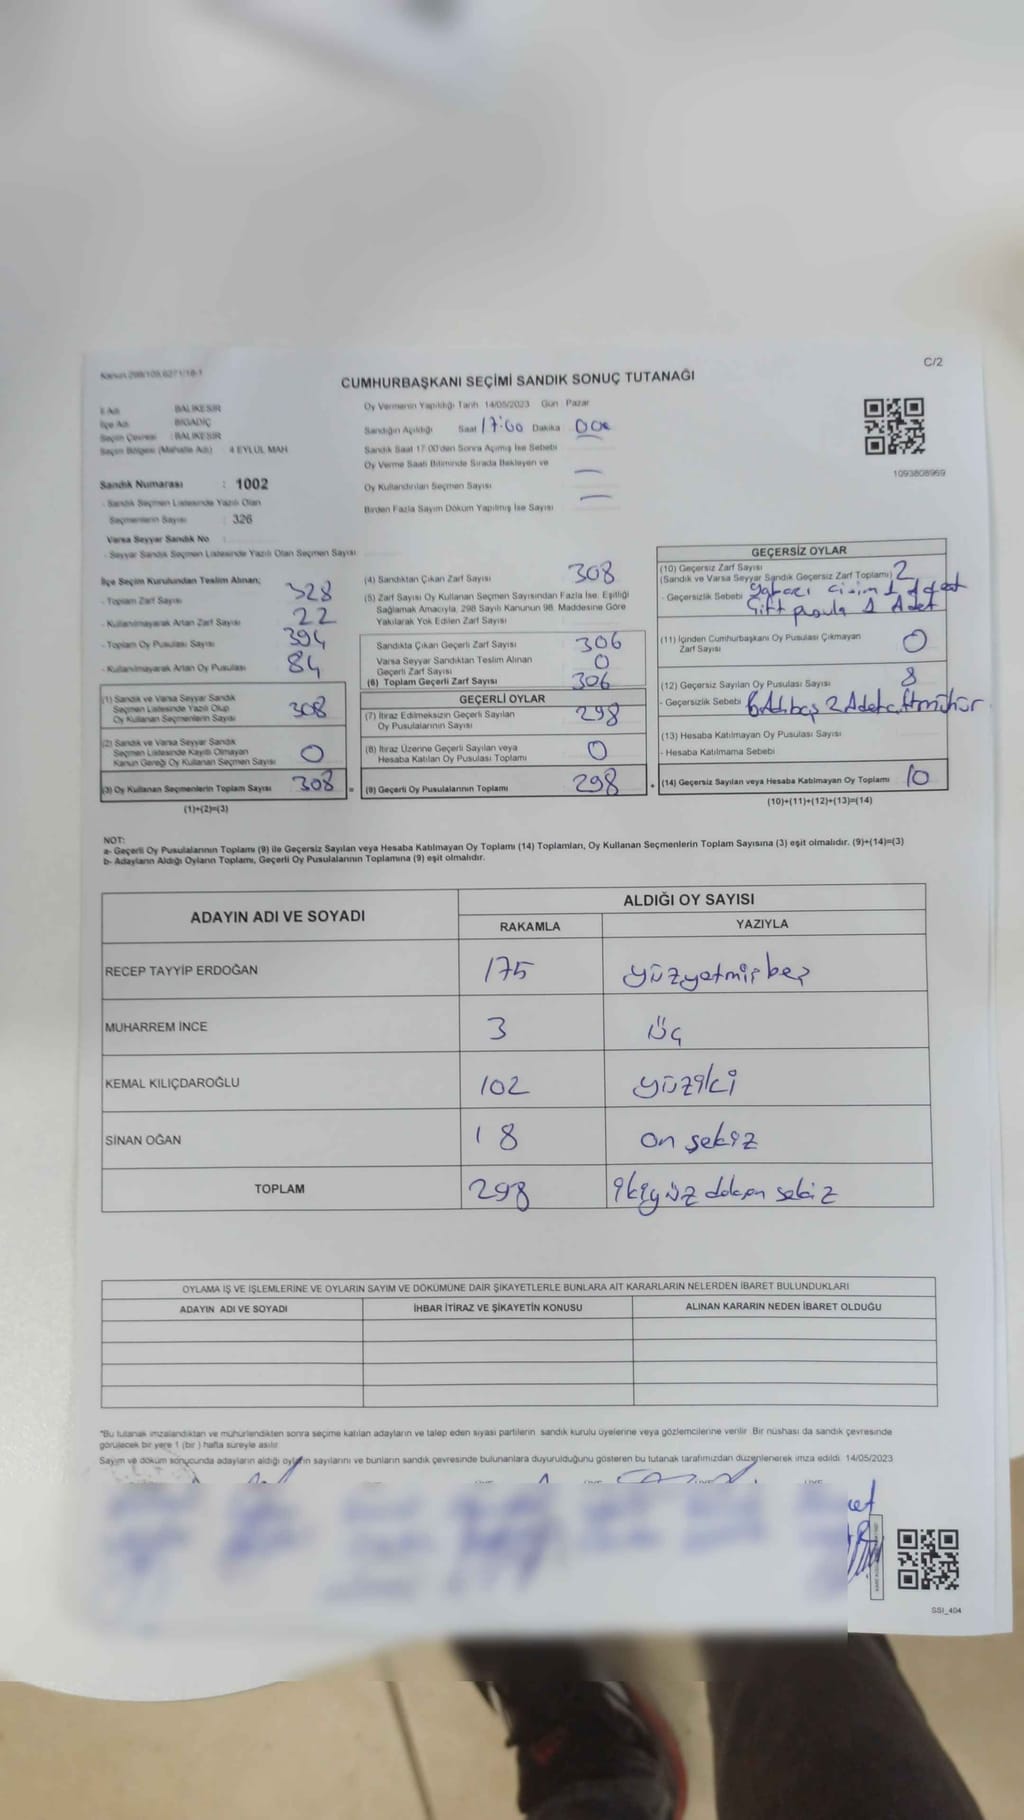 C/2
CUMHURBAŞKANI SEÇİMİ SANDIK SONUÇ TUTANAĞI
İl Adı : BALIKESİR
İlçe Adı : BİGADİÇ
Seçim Çevresi : BALIKESİR
Seçim Bölgesi (Mahalle Adı) : 4 EYLÜL MAH.
Sandık Numarası : 1002
- Sandık Seçmen Listesinde Yazılı Olan
Seçmenlerin Sayısı : 326
Varsa Seyyar Sandık No
- Seyyar Sandık Seçmen Listesinde Yazılı Olan Seçmen Sayısı
Oy Vermenin Yapıldığı Tarih 14/05/2023 Gün Pazar
Sandığın Açıldığı Saat 17:00 Dakika
Sandık Saat 17:00'den Sonra Açılmış İse Sebebi
Oy Verme Saati Bitiminde Sırada Bekleyen ve
Oy Kullandırılan Seçmen Sayısı
Birden Fazla Sayım Döküm Yapılmış İse Sayısı
1093808969
İlçe Seçim Kurulundan Teslim Alınan;
- Toplam Zarf Sayısı 328
- Kullanılmayarak Artan Zarf Sayısı 22
- Toplam Oy Pusulası Sayısı 394
- Kullanılmayarak Artan Oy Pusulası 84
(1) Sandık ve Varsa Seyyar Sandık
Seçmen Listesinde Yazılı Olup
Oy Kullanan Seçmenlerin Sayısı 308
(2) Sandık ve Varsa Seyyar Sandık
Seçmen Listesinde Kayıtlı Olmayan
Kanun Gereği Oy Kullanan Seçmen Sayısı 0
(3) Oy Kullanan Seçmenlerin Toplam Sayısı 308 =
(1)+(2)=(3)
(4) Sandıktan Çıkan Zarf Sayısı 308
(5) Zarf Sayısı Oy Kullanan Seçmen Sayısından Fazla İse, Eşitliği
Sağlamak Amacıyla, 298 Sayılı Kanunun 98. Maddesine Göre
Yakılarak Yok Edilen Zarf Sayısı
Sandıkta Çıkan Geçerli Zarf Sayısı 306
Varsa Seyyar Sandıktan Teslim Alınan
Geçerli Zarf Sayısı 0
(6) Toplam Geçerli Zarf Sayısı 306
GEÇERLİ OYLAR
(7) İtiraz Edilmeksizin Geçerli Sayılan
Oy Pusulalarının Sayısı 298
(8) İtiraz Üzerine Geçerli Sayılan veya
Hesaba Katılan Oy Pusulası Toplamı 0
(9) Geçerli Oy Pusulalarının Toplamı 298 +
GEÇERSİZ OYLAR
(10) Geçersiz Zarf Sayısı
(Sandık ve Varsa Seyyar Sandık Geçersiz Zarf Toplamı) 2
- Geçersizlik Sebebi yabancı cisim 1 adet
Çift pusula 1 Adet
(11) İçinden Cumhurbaşkanı Oy Pusulası Çıkmayan
Zarf Sayısı 0
(12) Geçersiz Sayılan Oy Pusulası Sayısı 8
- Geçersizlik Sebebi 2 Adet
(13) Hesaba Katılmayan Oy Pusulası Sayısı
- Hesaba Katılmama Sebebi
(14) Geçersiz Sayılan veya Hesaba Katılmayan Oy Toplamı 10
(10)+(11)+(12)+(13)=(14)
NOT:
a- Geçerli Oy Pusulalarının Toplamı (9) ile Geçersiz Sayılan veya Hesaba Katılmayan Oy Toplamı (14) Toplamları, Oy Kullanan Seçmenlerin Toplam Sayısına (3) eşit olmalıdır. (9)+(14)=(3)
b- Adayların Aldığı Oyların Toplamı, Geçerli Oy Pusulalarının Toplamına (9) eşit olmalıdır.
ADAYIN ADI VE SOYADI
ALDIĞI OY SAYISI
RAKAMLA YAZIYLA
RECEP TAYYİP ERDOĞAN 175 yüzyetmişbeş
MUHARREM İNCE 3 üç
KEMAL KILIÇDAROĞLU 102 yüziki
SİNAN OĞAN 18 on sekiz
TOPLAM 298 ikiyüz doksan sekiz
OYLAMA İŞ VE İŞLEMLERİNE VE OYLARIN SAYIM VE DÖKÜMÜNE DAİR ŞİKAYETLERLE BUNLARA AİT KARARLARIN NELERDEN İBARET BULUNDUKLARI
ADAYIN ADI VE SOYADI İHBAR İTİRAZ VE ŞİKAYETİN KONUSU ALINAN KARARIN NEDEN İBARET OLDUĞU
*Bu tutanak imzalandıktan ve mühürlendikten sonra seçime katılan adayların ve talep eden siyasi partilerin sandık kurulu üyelerine veya gözlemcilerine verilir. Bir nüshası da sandık çevresinde
görülecek bir yere 1 (bir ) hafta süreyle asılır.
Sayım ve döküm sonucunda adayların aldığı oyların sayılarını ve bunların sandık çevresinde bulunanlara duyurulduğunu gösteren bu tutanak tarafımızdan düzenlenerek imza edildi. 14/05/2023
SSI_404